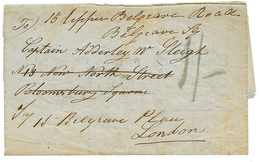 15 Upper Belgrave Road
Belgrave Sq
Captain Adderley W Sleigh
N 13 New North Street
Bloomsbury Square
15 Belgrave Place
London
1/-